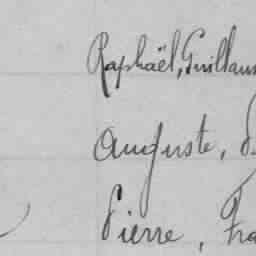 Raphaël, Guillaum
Auguste, d
Pierre, Fra